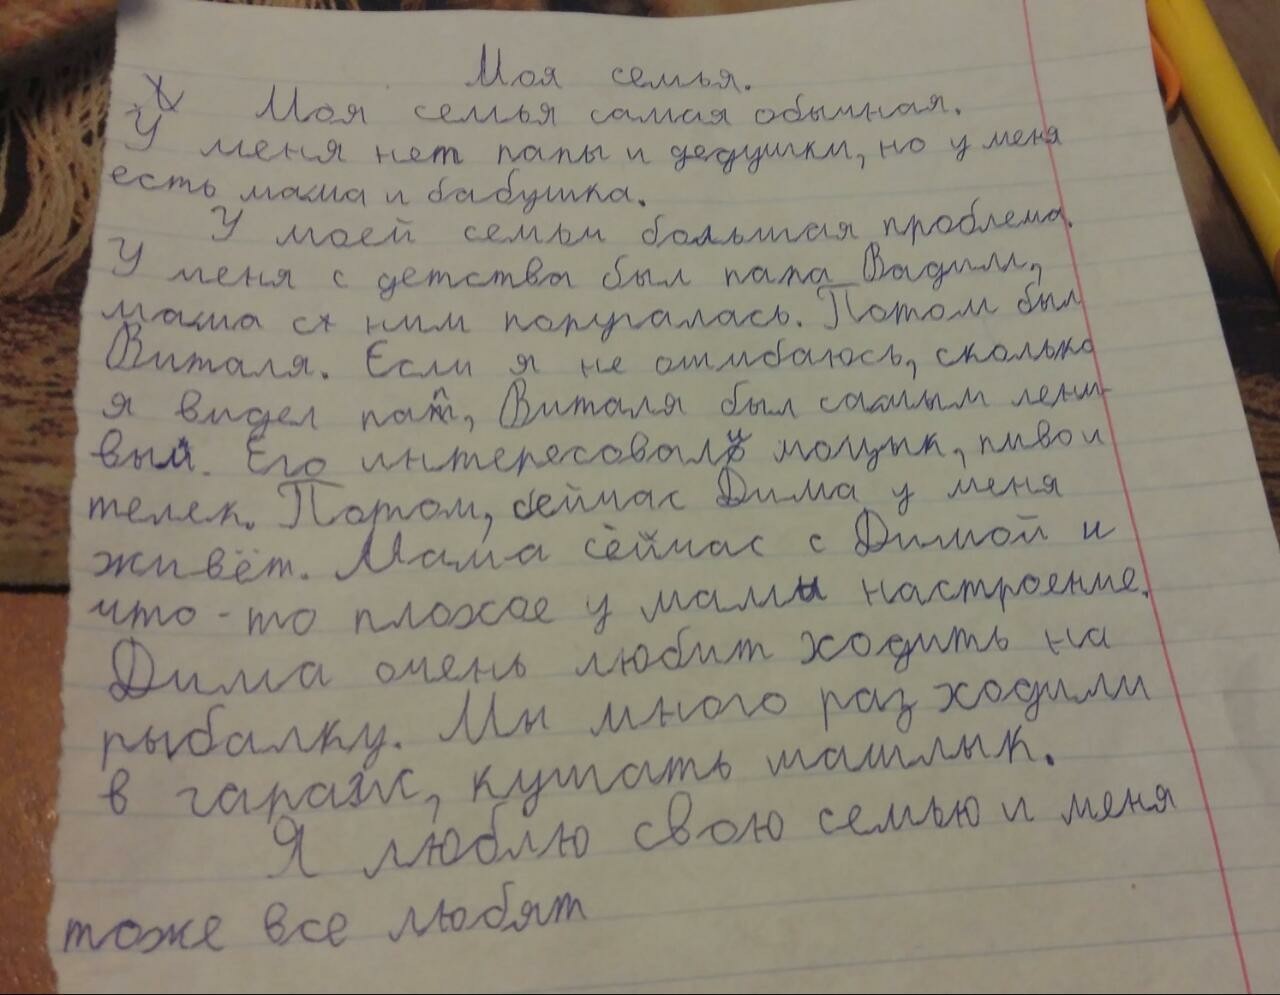 Моя семья.
Моя семья самая обычная.
У меня нет папы и дедушки, но у меня
есть мама и бабушка.
У моей семьи большая проблема.
У меня с детства был папа Вадим,
мама с ним поругалась. Потом был
Виталя. Если я не ошибаюсь, сколько
я видел пап, Виталя был самым лени-
вый. Его интересовали моцык, пиво и
телек. Потом, сейчас Дима у меня
живёт. Мама сейчас с Димой и
что-то плохое у мамы настроение.
Дима очень любит ходить на
рыбалку. Мы много раз ходили
в гараж, кушать шашлык.
Я люблю свою семью и меня
тоже все любят